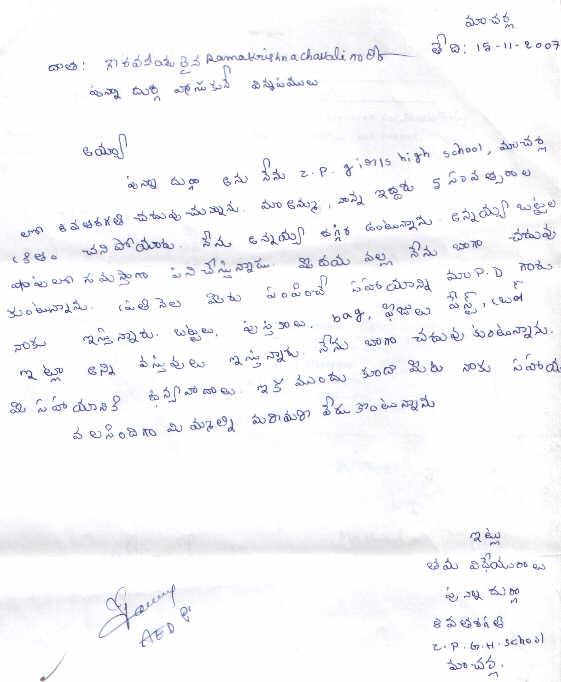 మాచర్ల
తేది: 15-11-2007
దాత: గౌరవనీయులైన Ramakrishnachavali గార్కి
పున్నా దుర్గ వ్రాసుకునే విన్నపములు
అయ్యా
పున్నా దుర్గా అను నేను Z.P. girls high school, మాచర్ల
లో 8వ తరగతి చదువుచున్నాను. మా అమ్మా, నాన్న ఇద్దరు 5 సంవత్సరాల
క్రితం చనిపోయారు. నేను అన్నయ్య దగ్గర ఉంటున్నాను. అన్నయ్య బట్టల
షాపులో గుమస్తాగా పనిచేస్తున్నాడు. మీ దయ వల్ల నేను బాగా చదువు
కుంటున్నాను. ప్రతి నెల మీరు పంపించే సహాయాన్ని మా P.D గారు
నాకు ఇస్తున్నారు. బట్టలు, పుస్తకాలు, bag, ఫీజులు పేస్ట్, బ్రష్
ఇట్లా అన్ని వస్తువులు ఇస్తున్నారు. నేను బాగా చదువుకుంటున్నాను.
మీ సహాయానికి ధన్యవాదాలు. ఇక ముందు కుడా మీరు నాకు సహాయ
పలసిందిగా మిమ్మల్ని మరీమరీ వేడుకొంటున్నాను
ఇట్లు
తమ విధేయురాలు
పున్నా దుర్గా
8వ తరగతి
Z.P.G.H.School
మాచర్ల.
AED